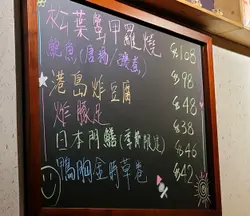 松葉蟹甲羅燒 $108
鮑魚(唐揚/濃煮) $98
港島炸豆腐 $48
炸豚足 $38
日本門鱔(季節限定) $46
鴨胸金時草卷 $42